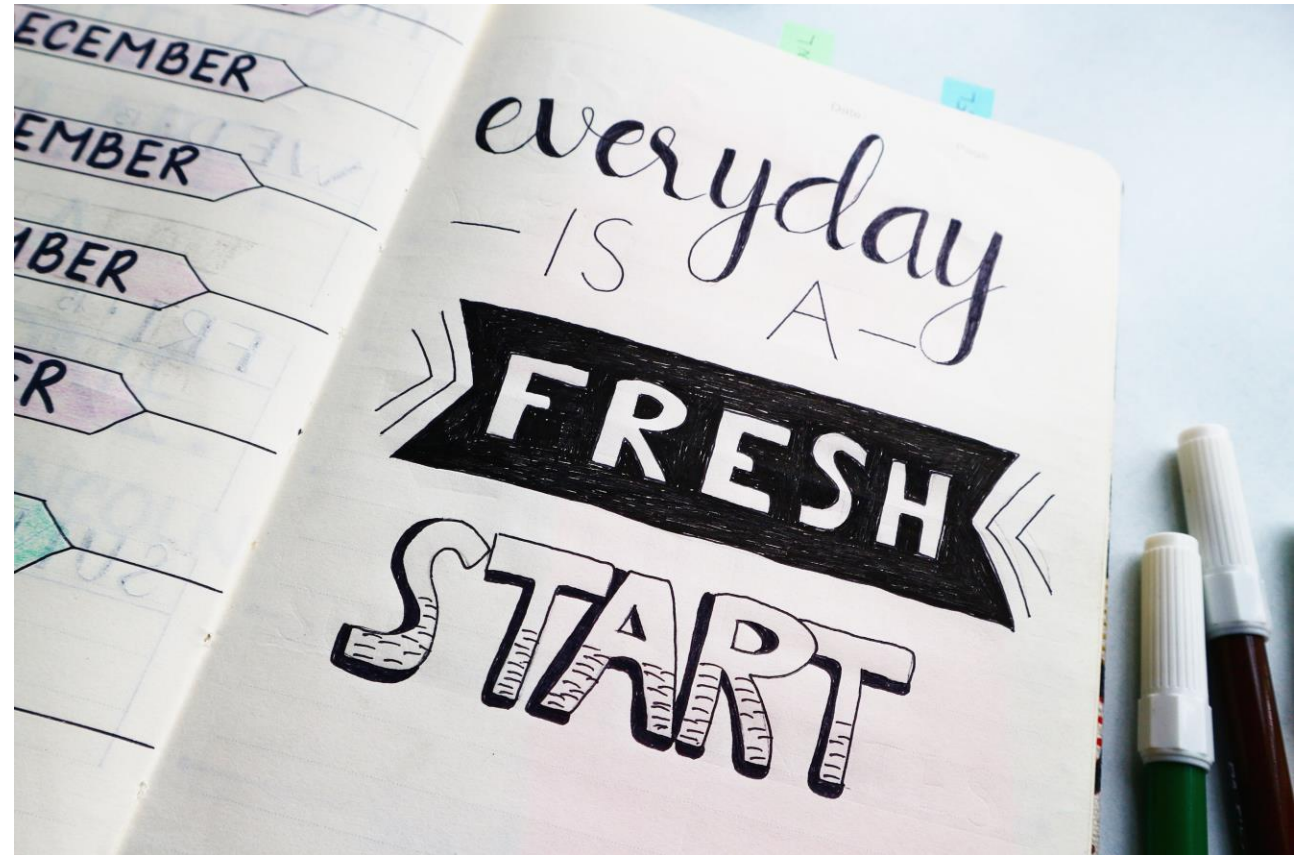 ECEMBER
EMBER
MBER
ER
everyday
— IS A —
FRESH
START